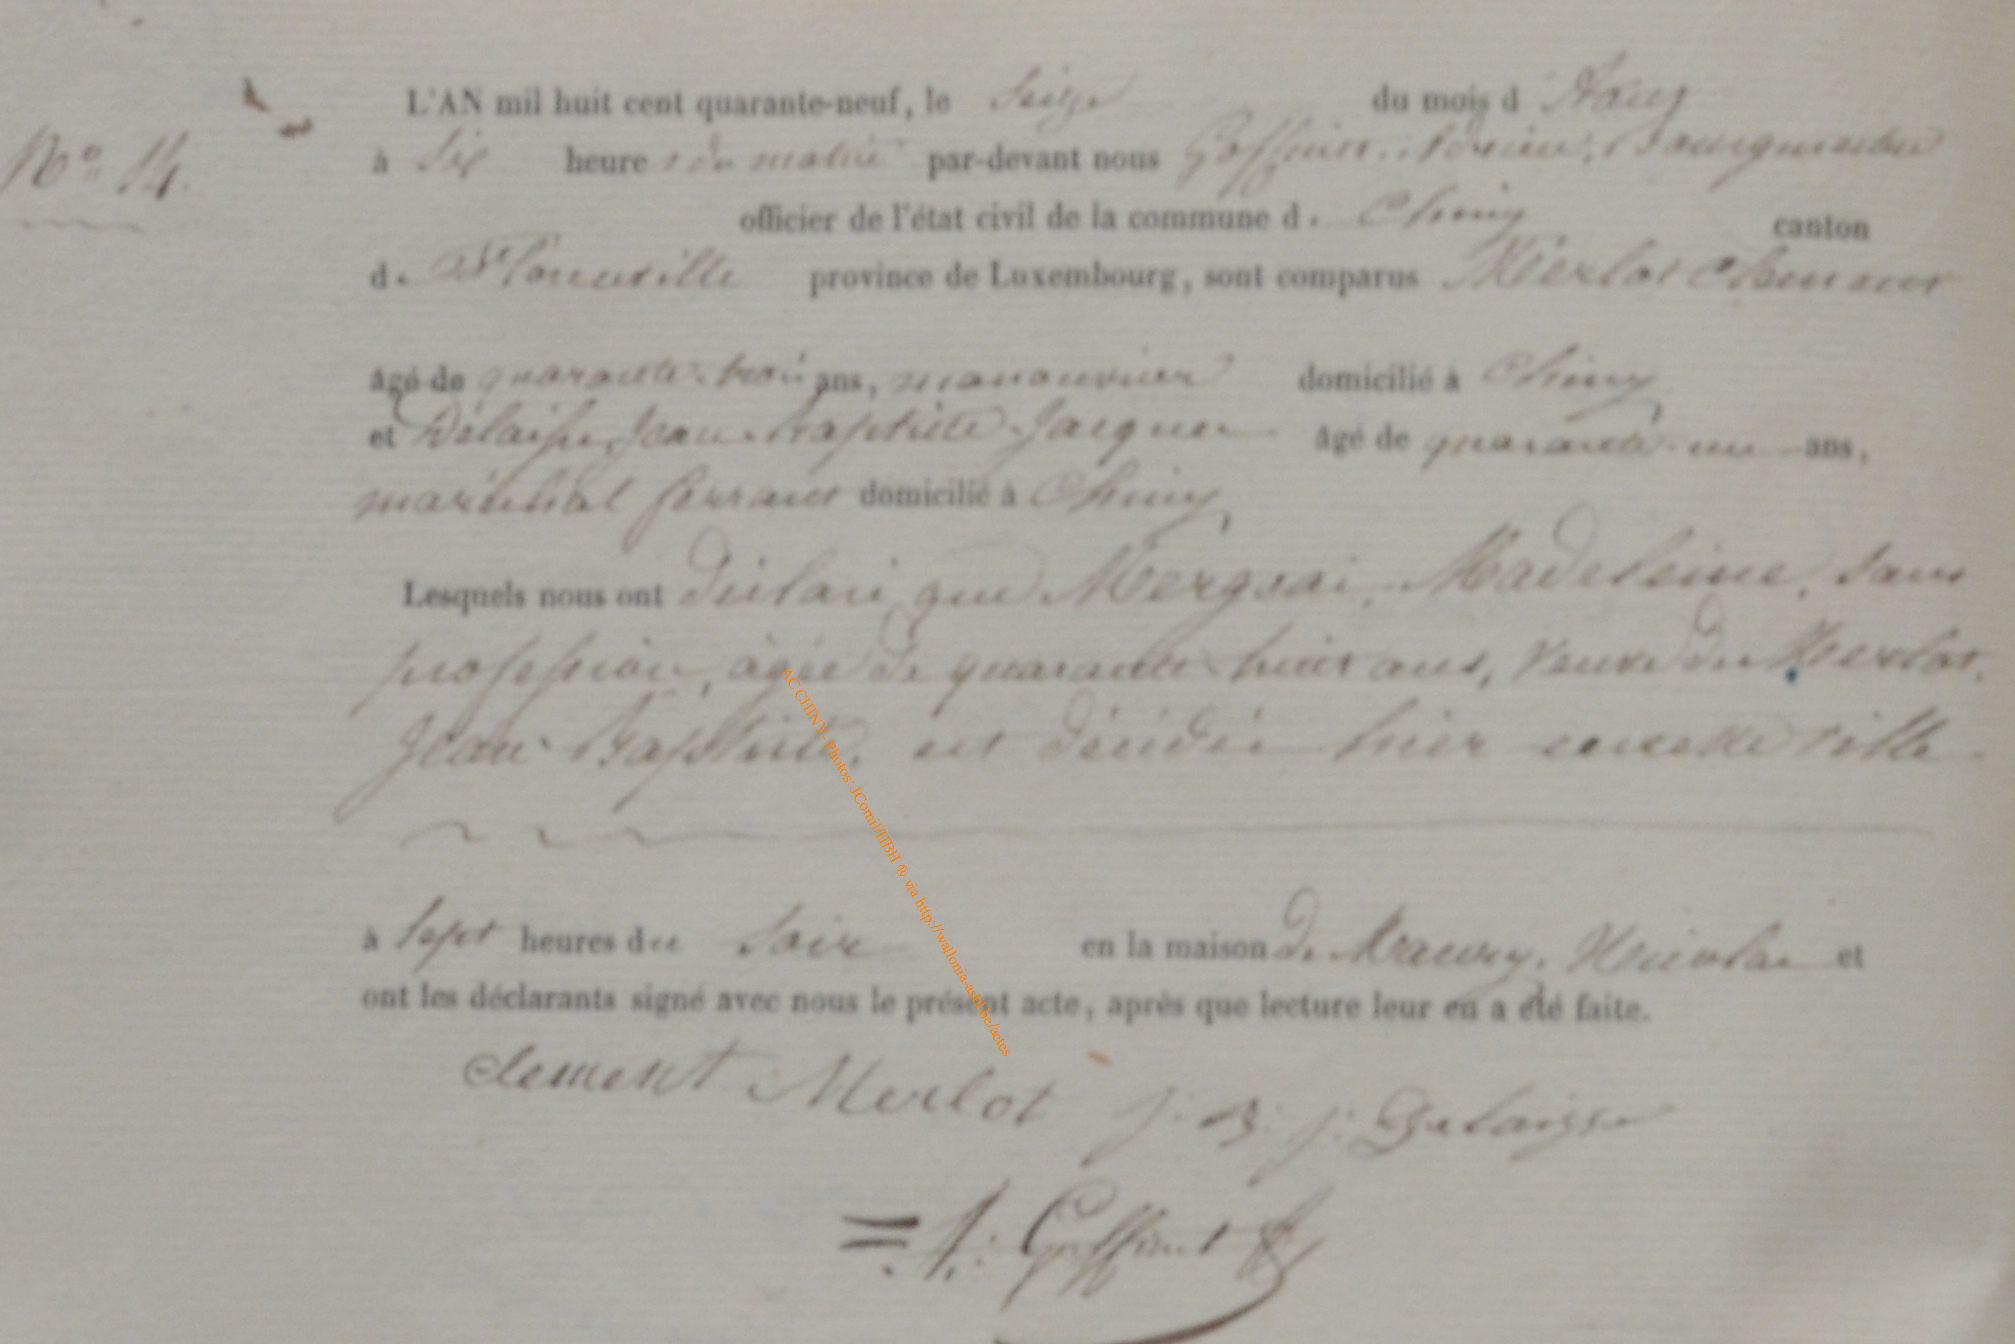 N° 14.
L'AN mil huit cent quarante-neuf, le Seize du mois d'Août
à Six heures du matin par-devant nous Goffinet, Adrien, Bourgmestre
officier de l'état civil de la commune de Chiny canton
de Florenville province de Luxembourg, sont comparus Merlot Clément
âgé de quarante-trois ans, manouvrier domicilié à Chiny,
et Delaisse, Jean-Baptiste-Jacques âgé de quarante-un ans,
maréchal ferrant domicilié à Chiny,
Lesquels nous ont déclaré que Mergeai, Madeleine, sans
profession, âgée de quarante huit ans, veuve de Merlot,
Jean-Baptiste, est décédée hier en cette ville
à Sept heures du Soir en la maison de Nicolas et
ont les déclarants signé avec nous le présent acte, après que lecture leur en a été faite.
clement Merlot J: B: J: Delaisse
A: Goffinet
AC CHINY- Photos: JComil/IIBH ® via http://wallonia-asbl.be/actes